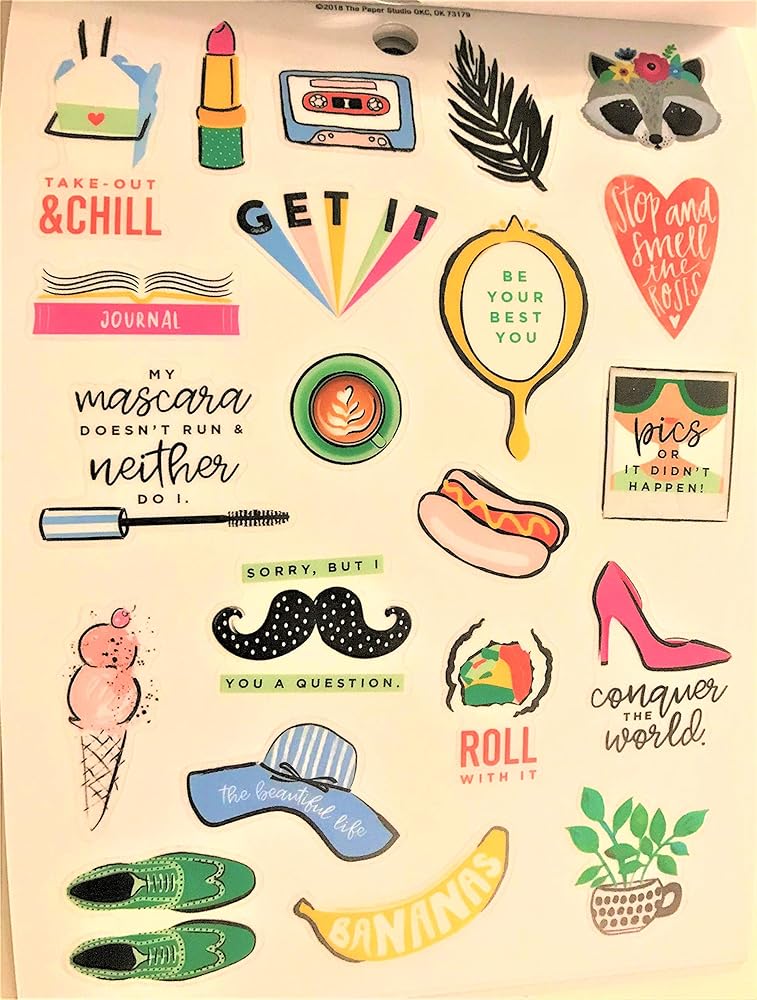 ©2018 The Paper Studio OKC, OK 73179
TAKE-OUT
&CHILL
GET IT
STOP and
smell
the
ROSES
BE
YOUR
BEST
YOU
JOURNAL
MY
mascara
DOESN'T RUN &
neither
DO I.
pics
OR
IT DIDN'T
HAPPEN!
SORRY, BUT I
YOU A QUESTION.
conquer
THE
world.
ROLL
WITH IT
the beautiful life
BANANAS